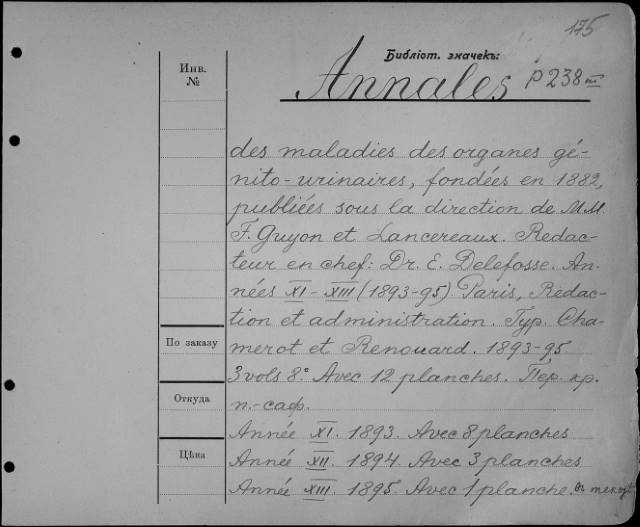 175
Библіот. значекъ:
Инв.
№
Annales P 238 III
des maladies des organes gé-
nito-urinaires, fondées en 1882,
publiées sous la direction de MM.
F. Guyon et Lancereaux. Redac-
teur en chef: Dr. E. Delefosse. An-
nées XI-XIII (1893-95). Paris, Redac-
tion et administration. Typ. Cha-
По заказу
merot et Renouard. 1893-95
3 vols 8.° Avec 12 planches. Пер. кр.
Откуда
п.-саф.
Année XI. 1893. Avec 8 planches
Цѣна
Année XII. 1894. Avec 3 planches
Année XIII. 1895. Avec 1 planche.